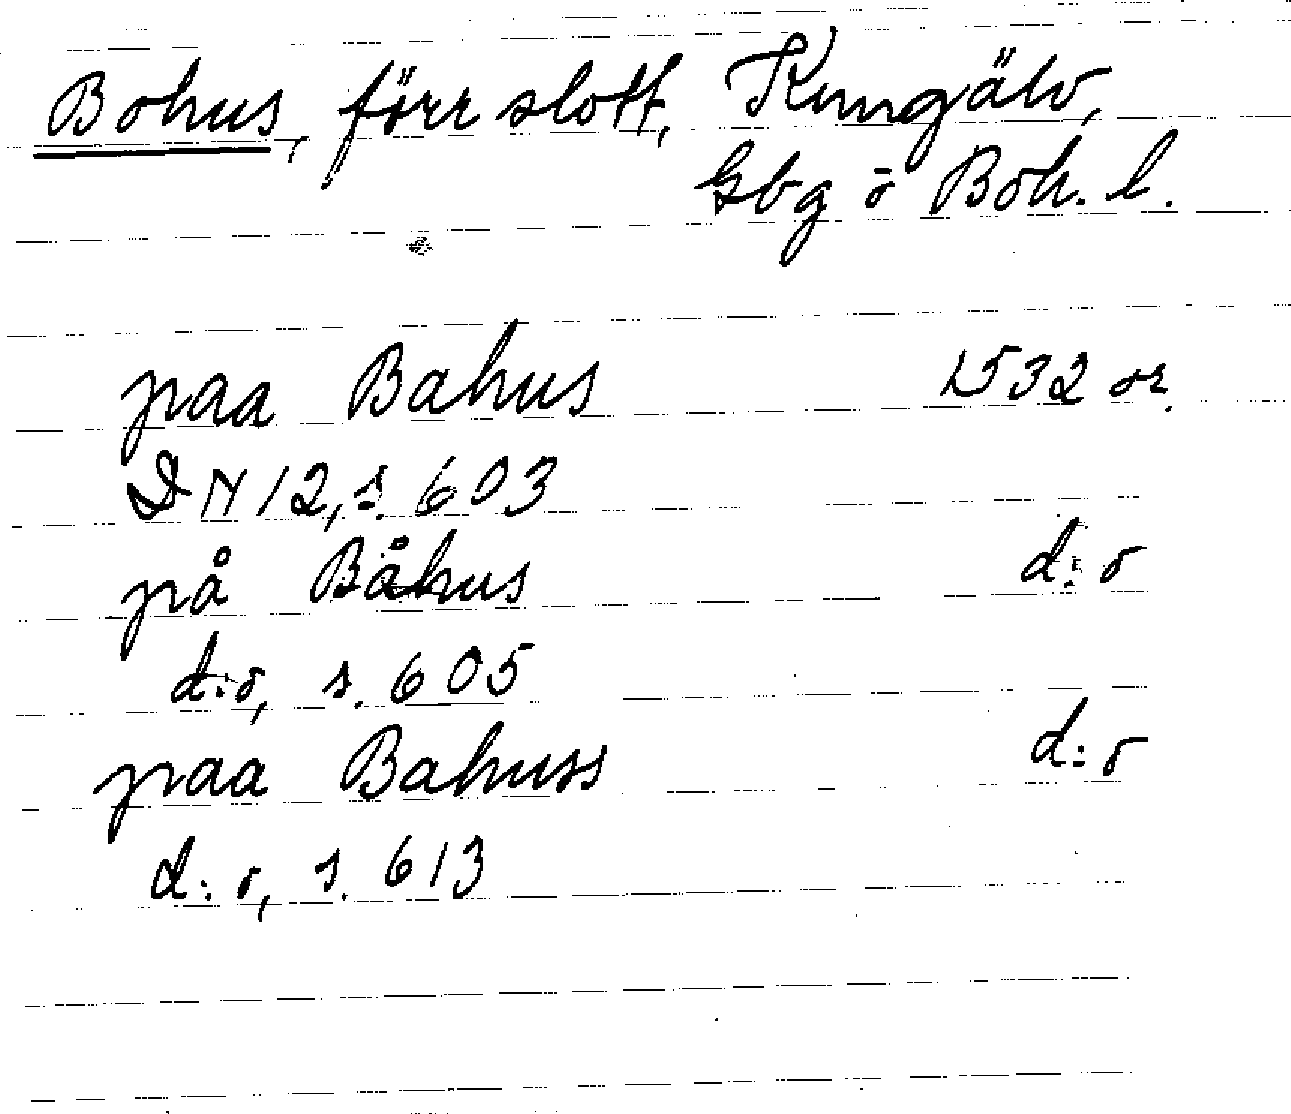 Bohus, förr slott, Kungälv,
Gbg o Boh. l.
paa Bahus 1532 or.
DN 12, s. 603
på Båhus d:o
d:o, s. 605
paa Bahuss d:o
d:o, s. 613